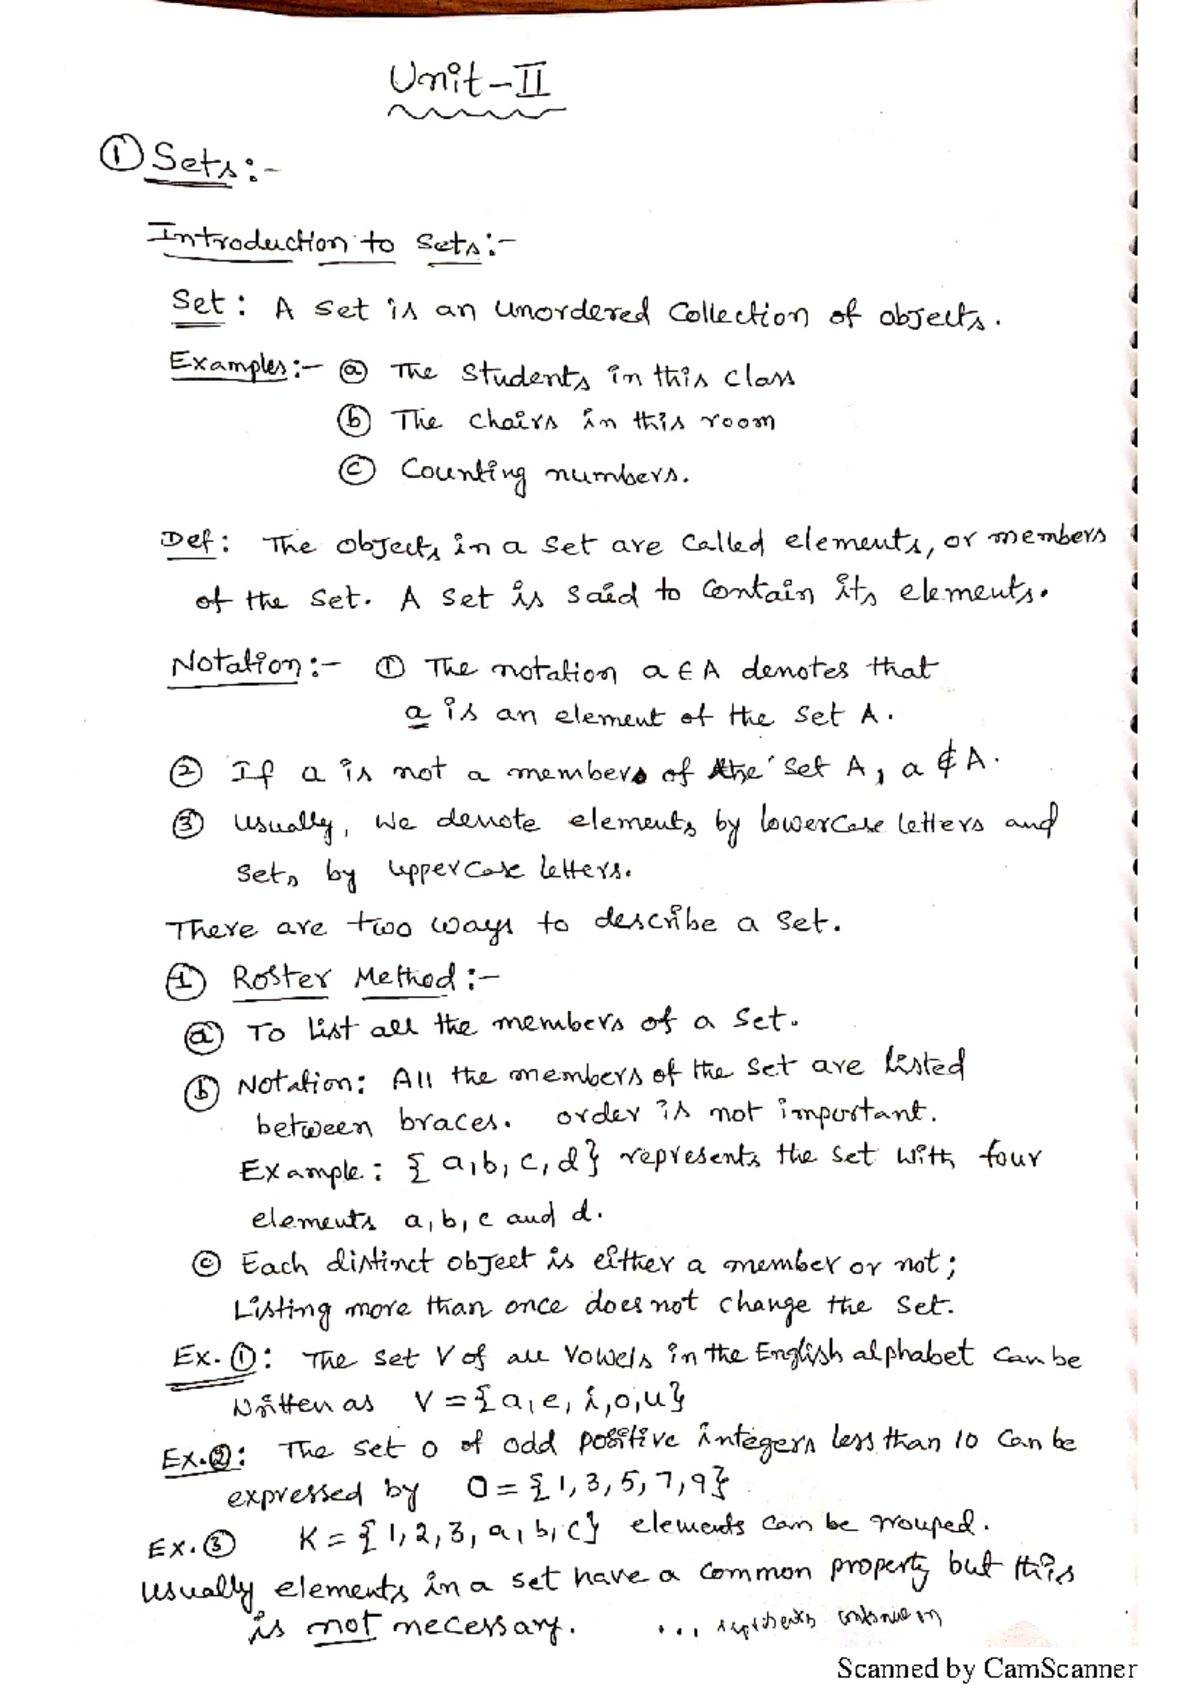 Unit-II
① Sets:-
Introduction to Sets:-
Set: A set is an unordered collection of objects.
Examples:- ⓐ The students in this class
ⓑ The chairs in this room
ⓒ Counting numbers.
Def: The objects in a set are called elements, or members
of the set. A set is said to contain its elements.
Notation:- ① The notation a ∈ A denotes that
a is an element of the set A.
② If a is not a members of the set A, a ∉ A.
③ Usually, we denote elements by lowercase letters and
sets by uppercase letters.
There are two ways to describe a set.
① Roster Method:-
ⓐ To list all the members of a set.
ⓑ Notation: All the members of the set are listed
between braces. order is not important.
Example: {a, b, c, d} represents the set with four
elements a, b, c and d.
ⓒ Each distinct object is either a member or not;
Listing more than once does not change the set.
Ex. ①: The set V of all vowels in the English alphabet can be
written as V = {a, e, i, o, u}
Ex. ②: The set O of odd positive integers less than 10 can be
expressed by O = {1, 3, 5, 7, 9}
Ex. ③ K = {1, 2, 3, a, b, c} elements can be grouped.
Usually elements in a set have a common property but this
is not necessary. ...
Scanned by CamScanner